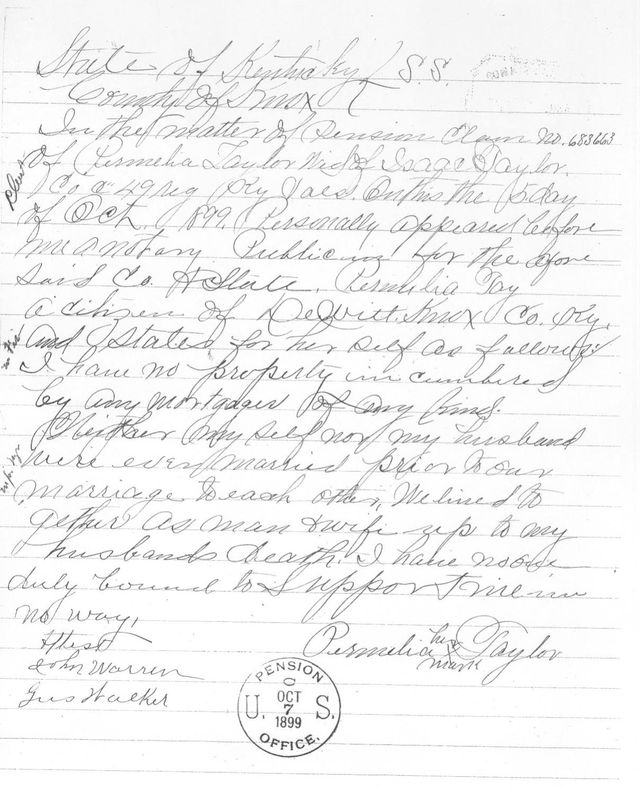 State of Kentucky } S.S.
County of Knox
In the matter of Pension Claim No. 683663
of Permelia Taylor Wid of Isaac Taylor.
Co 49 reg Ky Vols. On this the 5 day
of Oct. 1899. Personally appeared before
me a notary Public in for the afore
said Co. & State. Permelia Tay
a citizen of DeWitt. Knox Co. Ky.
and States for her self as follows:
I have no property in cumbered
by any mortgages of any kind.
Neither my self nor my husband
were ever married prior to our
marriage to each other, We lived to
gether as man & wife up to my
husbands death. I have no one
duly bound to support me in
no way,
Attest
John Warren
Gus Walker
Permelia her x mark Taylor
PENSION
U. S.
OCT
7
1899
OFFICE.